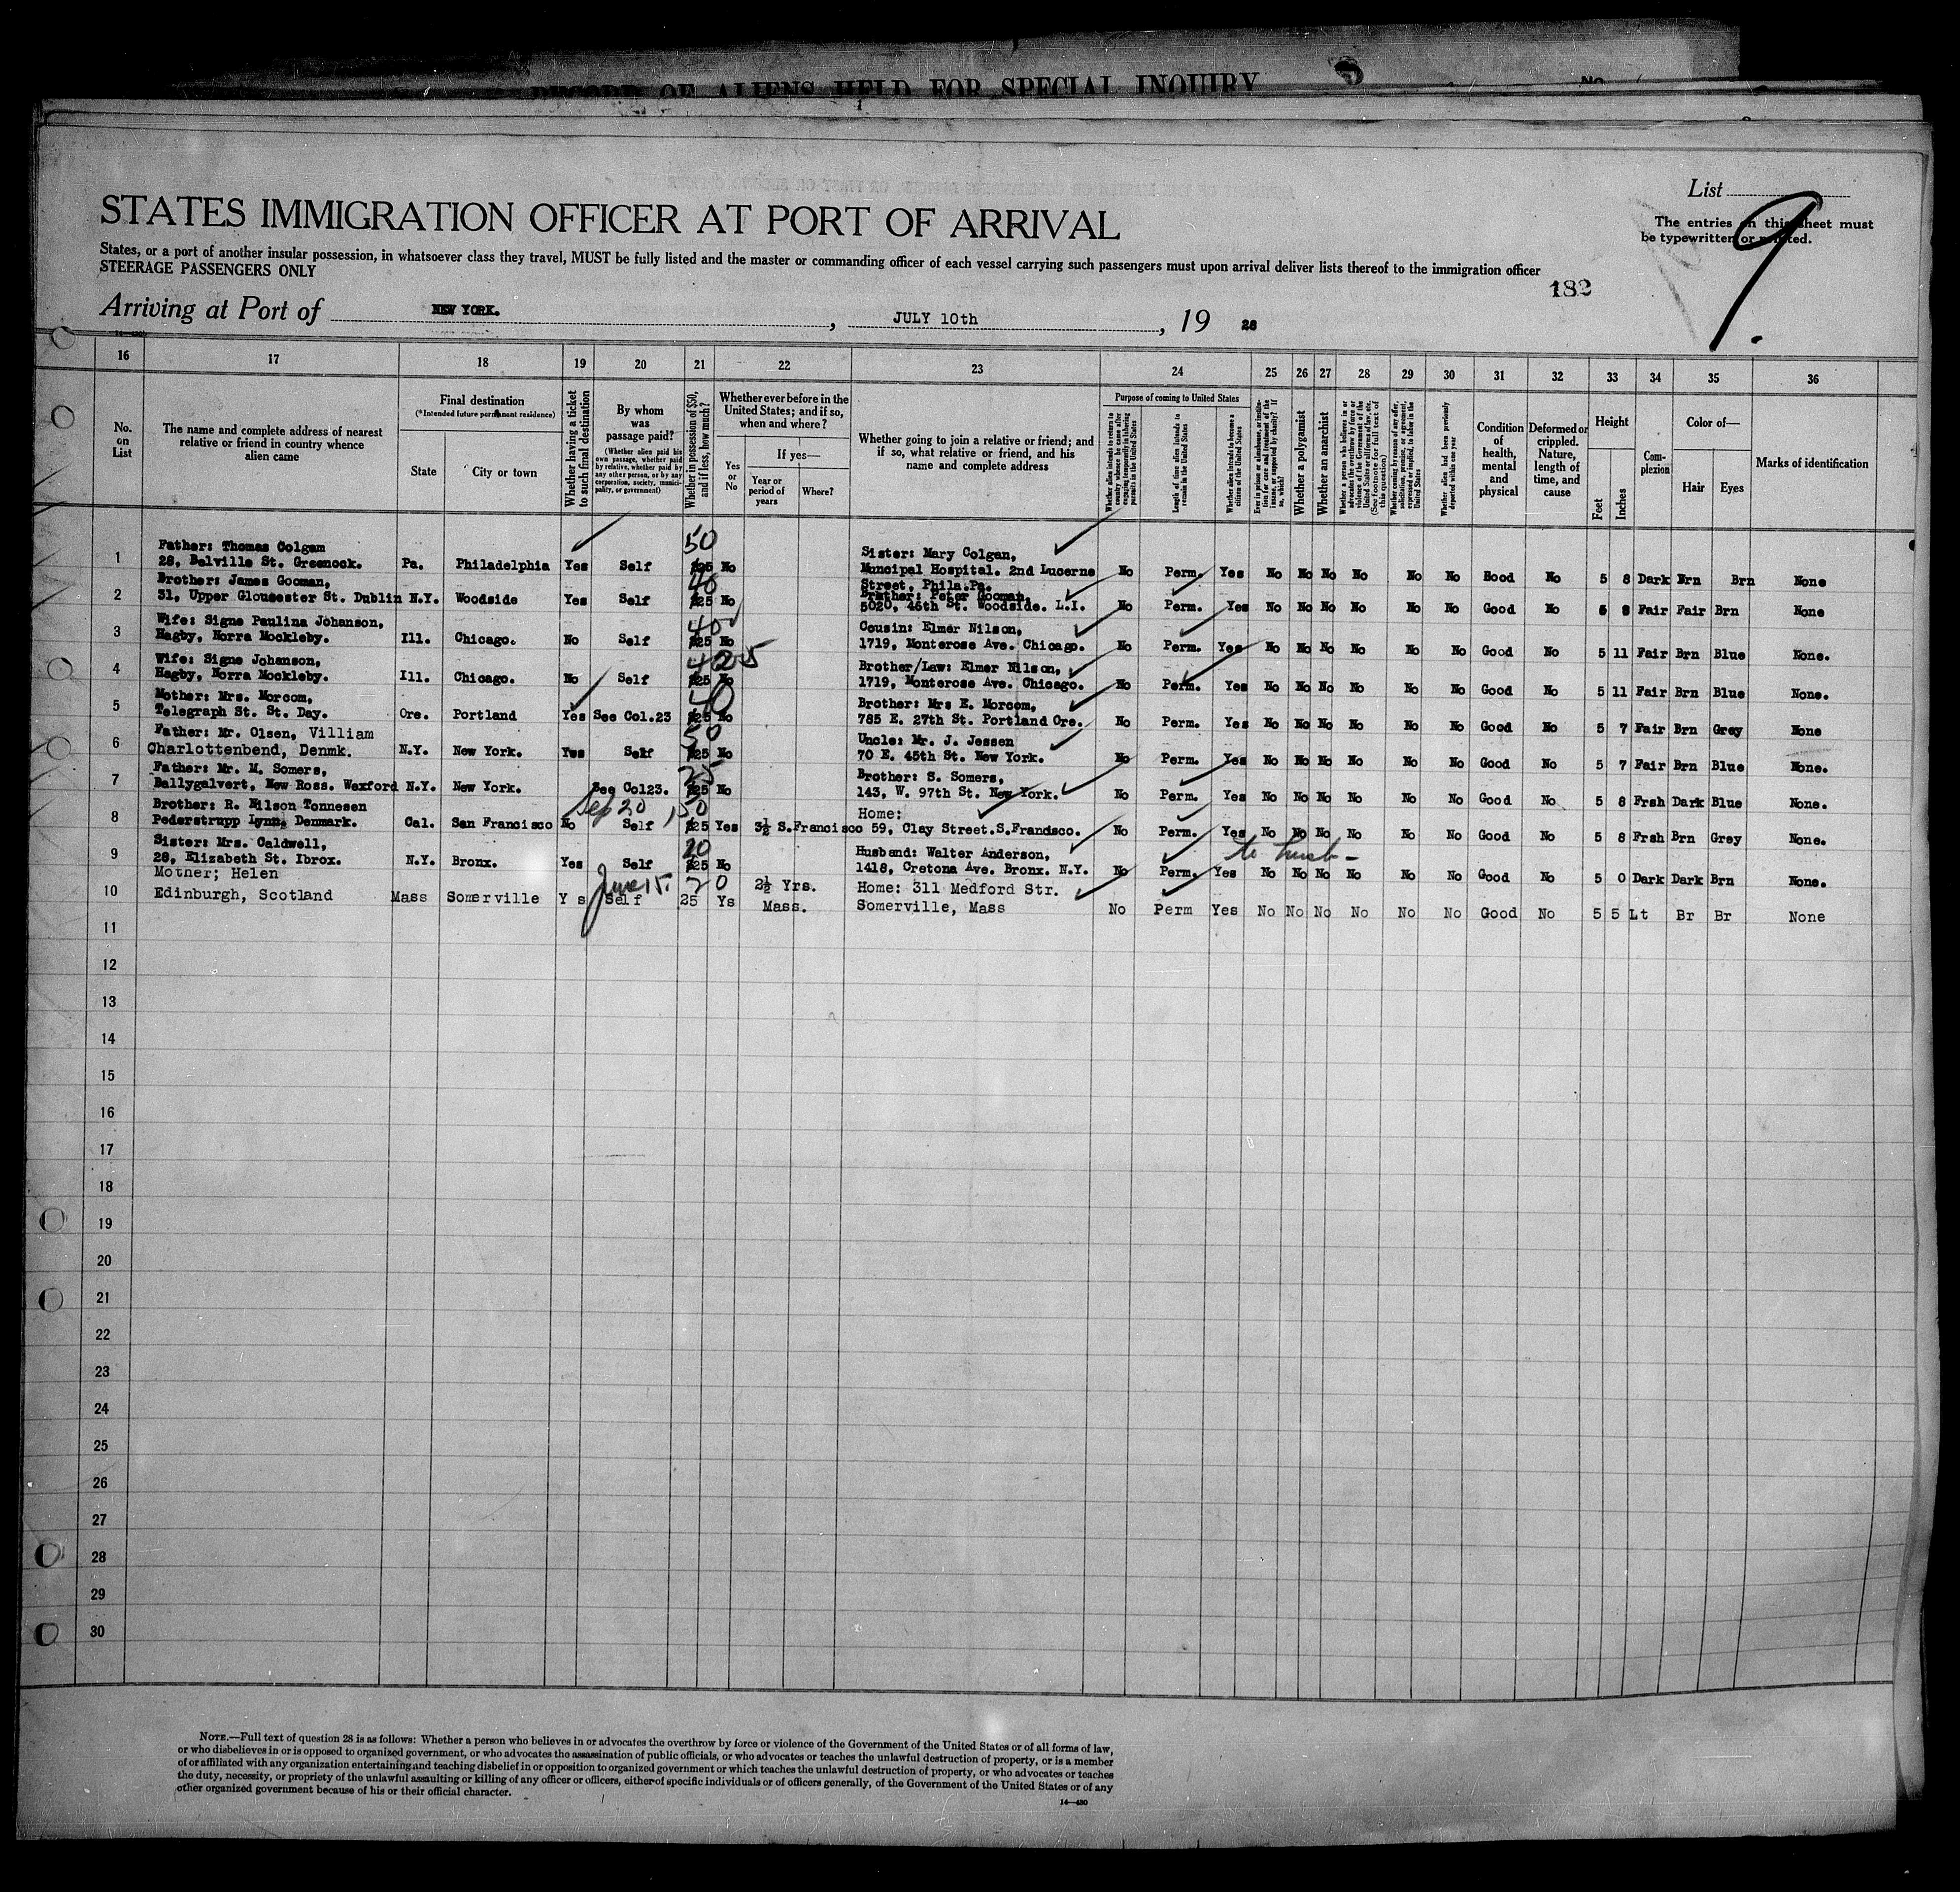 RECORD OF ALIENS HELD FOR SPECIAL INQUIRY
No.
List
9
The entries on this sheet must
be typewritten or printed.
STATES IMMIGRATION OFFICER AT PORT OF ARRIVAL
States, or a port of another insular possession, in whatsoever class they travel, MUST be fully listed and the master or commanding officer of each vessel carrying such passengers must upon arrival deliver lists thereof to the immigration officer
STEERAGE PASSENGERS ONLY
182
Arriving at Port of NEW YORK. , JULY 10th , 19 28
16 17 18 19 20 21 22 23 24 25 26 27 28 29 30 31 32 33 34 35 36
No. on List
The name and complete address of nearest relative or friend in country whence alien came
Final destination
(*Intended future permanent residence)
State
City or town
Whether having a ticket to such final destination
By whom was passage paid?
(Whether alien paid his own passage, whether paid by relative, whether paid by any other person, or by any corporation, society, municipality, or government)
Whether in possession of $50, and if less, how much?
Whether ever before in the United States; and if so, when and where?
Yes or No
If yes—
Year or period of years
Where?
Whether going to join a relative or friend; and if so, what relative or friend, and his name and complete address
Purpose of coming to United States
Whether alien intends to return to country whence he came after engaging temporarily in laboring pursuits in the United States
Length of time alien intends to remain in the United States
Whether alien intends to become a citizen of the United States
Ever in prison or almshouse, or institution for care and treatment of the insane, or supported by charity? If so, which?
Whether a polygamist
Whether an anarchist
Whether a person who believes in or advocates the overthrow by force or violence of the Government of the United States or all forms of law, etc. (See footnote for full text of this question)
Whether coming by reason of any offer, solicitation, promise, or agreement, expressed or implied, to labor in the United States
Whether alien had been previously deported within one year
Condition of health, mental and physical
Deformed or crippled. Nature, length of time, and cause
Height
Feet
Inches
Complexion
Color of—
Hair
Eyes
Marks of identification
Father: Thomas Colgan 50 Sister: Mary Colgan,
1 28, Belville St. Greenock. Pa. Philadelphia Yes Self 25 No Muncipal Hospital. 2nd Lucerne No Perm. Yes No No No No No No Good No 5 8 Dark Brn Brn None
Street. Phila.Pa.
Brother: James Gooman, 40 Brother: Peter Gooman,
2 31, Upper Gloucester St. Dublin N.Y. Woodside Yes Self 25 No 5020, 46th St. Woodside. L.I. No Perm. Yes No No No No No No Good No 5 8 Fair Fair Brn None
Wife: Signe Paulina Johanson, 40 Cousin: Elmer Nilson,
3 Hagby, Norra Mockleby. Ill. Chicago. No Self 25 No 1719, Monterose Ave. Chicago. No Perm. Yes No No No No No No Good No 5 11 Fair Brn Blue None.
Wife: Signe Johanson, Brother/Law: Elmer Nilson,
4 Hagby, Norra Mockleby. Ill. Chicago. No Self 25 No 1719, Monterose Ave. Chicago. No Perm. Yes No No No No No No Good No 5 11 Fair Brn Blue None.
Mother: Mrs. Morcom, 40 Brother: Mrs E. Morcom,
5 Telegraph St. St. Day. Ore. Portland Yes See Col.23 25 No 785 E. 27th St. Portland Ore. No Perm. Yes No No No No No No Good No 5 7 Fair Brn Grey None
Father: Mr. Olsen, Villiam 50 Uncle: Mr. J. Jessen
6 Charlottenbend, Denmk. N.Y. New York. Yes Self 25 No 70 E. 45th St. New York. No Perm. Yes No No No No No No Good No 5 7 Fair Brn Blue None.
Father: Mr. M. Somers, 25 Brother: S. Somers,
7 Ballygalvert, New Ross. Wexford N.Y. New York. See Col23. 25 No 143, W. 97th St. New York. No Perm. Yes No No No No No No Good No 5 8 Frsh Dark Blue None.
Brother: R. Nilson Tonnesen Sep 20 150 Home:
8 Pederstrupp Lynn, Denmark. Cal. San Francisco No Self 25 Yes 3½ S.Francisco 59, Clay Street.S.Francisco. No Perm. Yes No No No No No No Good No 5 8 Frsh Brn Grey None.
Sister: Mrs. Caldwell, 20 Husband: Walter Anderson, to husb-
9 28, Elizabeth St. Ibrox. N.Y. Bronx. Yes Self 25 No 1418, Cretona Ave. Bronx. N.Y. No Perm. Yes No No No No No No Good No 5 0 Dark Dark Brn None.
Mother; Helen June 15. 20 2½ Yrs. Home: 311 Medford Str.
10 Edinburgh, Scotland Mass Somerville Y s Self 25 Ys Mass. Somerville, Mass No Perm Yes No No No No No No Good No 5 5 Lt Br Br None
11
12
13
14
15
16
17
18
19
20
21
22
23
24
25
26
27
28
29
30
NOTE.—Full text of question 28 is as follows: Whether a person who believes in or advocates the overthrow by force or violence of the Government of the United States or of all forms of law,
or who disbelieves in or is opposed to organized government, or who advocates the assassination of public officials, or who advocates or teaches the unlawful destruction of property, or is a member
of or affiliated with any organization entertaining and teaching disbelief in or opposition to organized government or which teaches the unlawful destruction of property, or who advocates or teaches
the duty, necessity, or propriety of the unlawful assaulting or killing of any officer or officers, either of specific individuals or of officers generally, of the Government of the United States or of any
other organized government because of his or their official character.
14—430